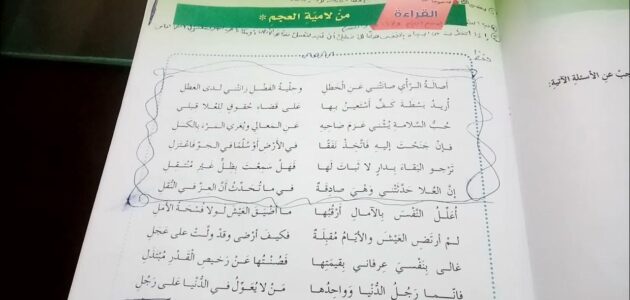 القراءة
من لاميّة العجم *
أجب عن الأسئلة الآتية:
أصالة الرّأي صانتني عن الخطل وحلية الفضل زانتني لدى العطل
أريد بسطة كفّ أستعين بها على قضاء حقوق للعلا قبلي
حبّ السّلامة يثني عزم صاحبه عن المعالي ويغري المرء بالكسل
فإن جنحت إليه فاتّخذ نفقا في الأرض أو سلّما في الجوّ فاعتزل
ترجو البقاء بدار لا ثبات لها فهل سمعت بظلّ غير منتقل
إنّ العلا حدّثتني وهي صادقة في ما تحدّث أنّ العزّ في النّقل
أعلّل النّفس بالآمال أرقبها ما أضيق العيش لولا فسحة الأمل
لم أرتض العيش والأيّام مقبلة فكيف أرضى وقد ولّت على عجل
غالى بنفسي عرفاني بقيمتها فصنتها عن رخيص القدر مبتذل
فإنّما رجل الدّنيا وواحدها من لا يعوّل في الدّنيا على رجل